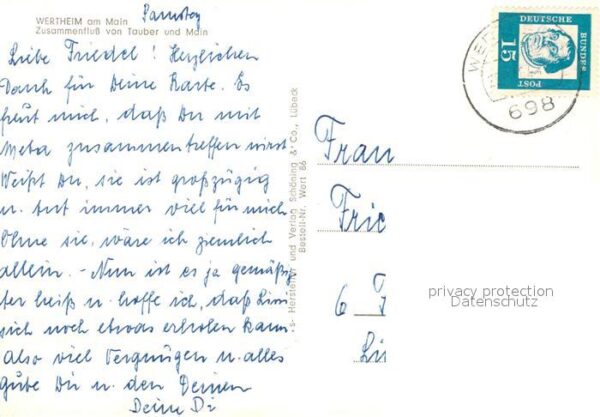 Samstag
WERTHEIM am Main
Zusammenfluß von Tauber und Main
Liebe Friedel! Herzlichen
Dank für Deine Karte. Es
freut mich, daß Du mit
Meta zusammentreffen wirst.
Weißt Du, sie ist großzügig
u. tut immer viel für mich
Ohne sie, wäre ich ziemlich
allein. - Nun ist es ja gemäßig
ter heiß u. hoffe ich, daß
sich noch etwas erholen kann.
Also viel Vergnügen u. alles
gute Dir u. den Deinen
Deine Di
Hersteller und Verlag Schöning & Co., Lübeck
Bestell-Nr. Wert 66
DEUTSCHE
BUNDES
POST
15
WER
698
Frau
Frie
6
Li
privacy protection
Datenschutz